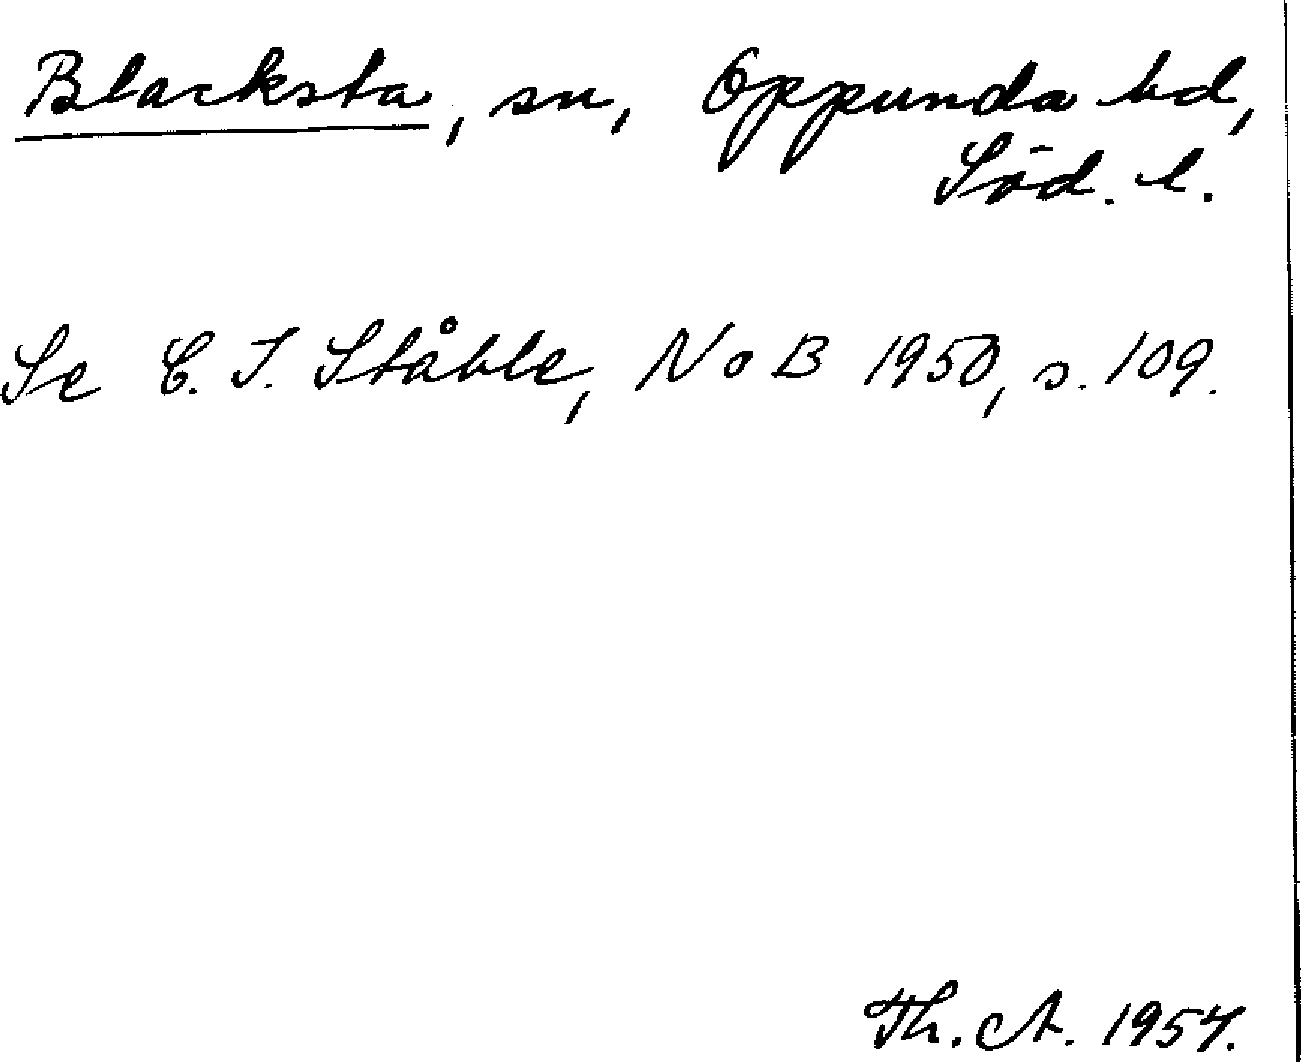 Blacksta, sn, Oppunda hd,
Söd. l.
Se C. I. Ståhle, NoB 1950, s. 109.
Th. A. 1957.